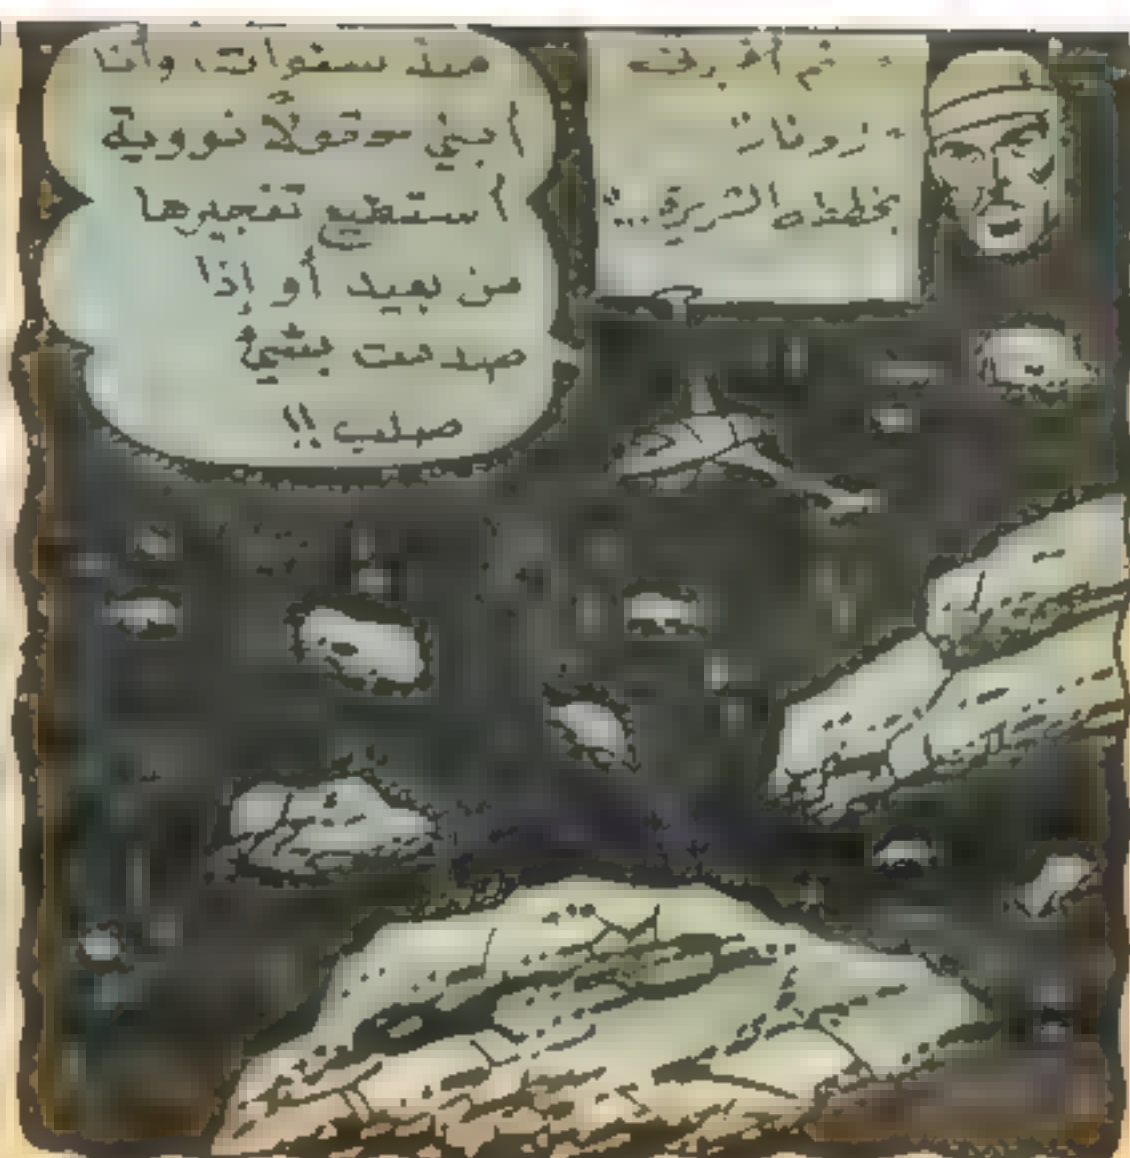 ثم أخرف
زونار
بخططه الشريرة..
منذ سنوات، وأنا
أبني حقولاً نووية
أستطيع تفجيرها
من بعيد أو إذا
صدمت بشيء
صلب !!